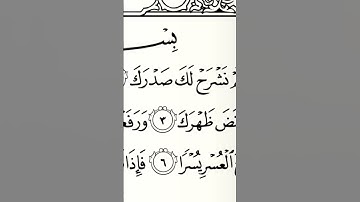 بِسْـ
نَشْرَحْ لَكَ صَدْرَكَ
ظَهْرَكَ ٣ وَرَفَعْ
ٱلْعُسْرِ يُسْرًا ٦ فَإِذَا